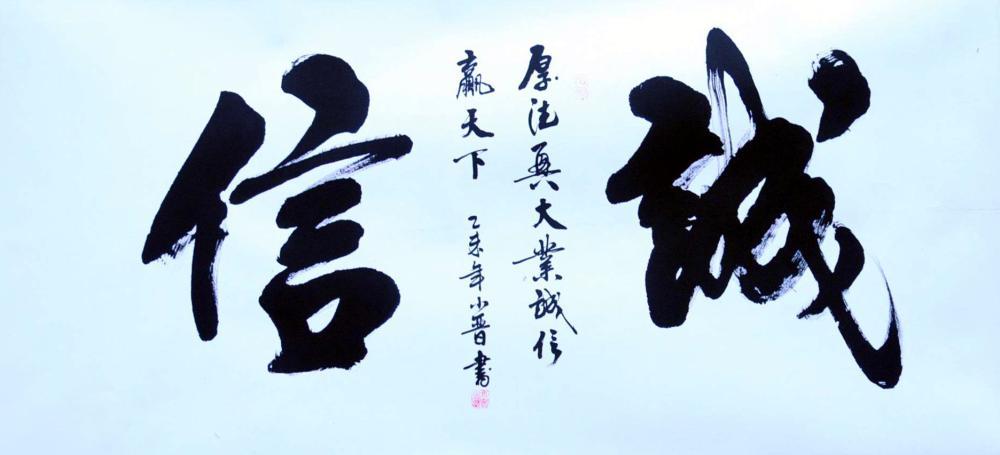 誠
厚德興大業誠信
贏天下 乙未年小晉書
信